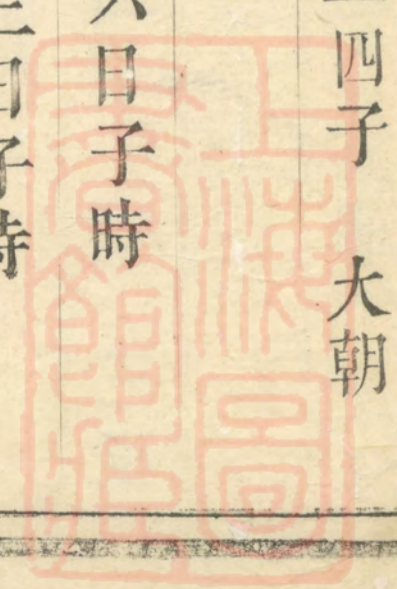 四子 大朝
日子時
三日子時
上海圖書館藏